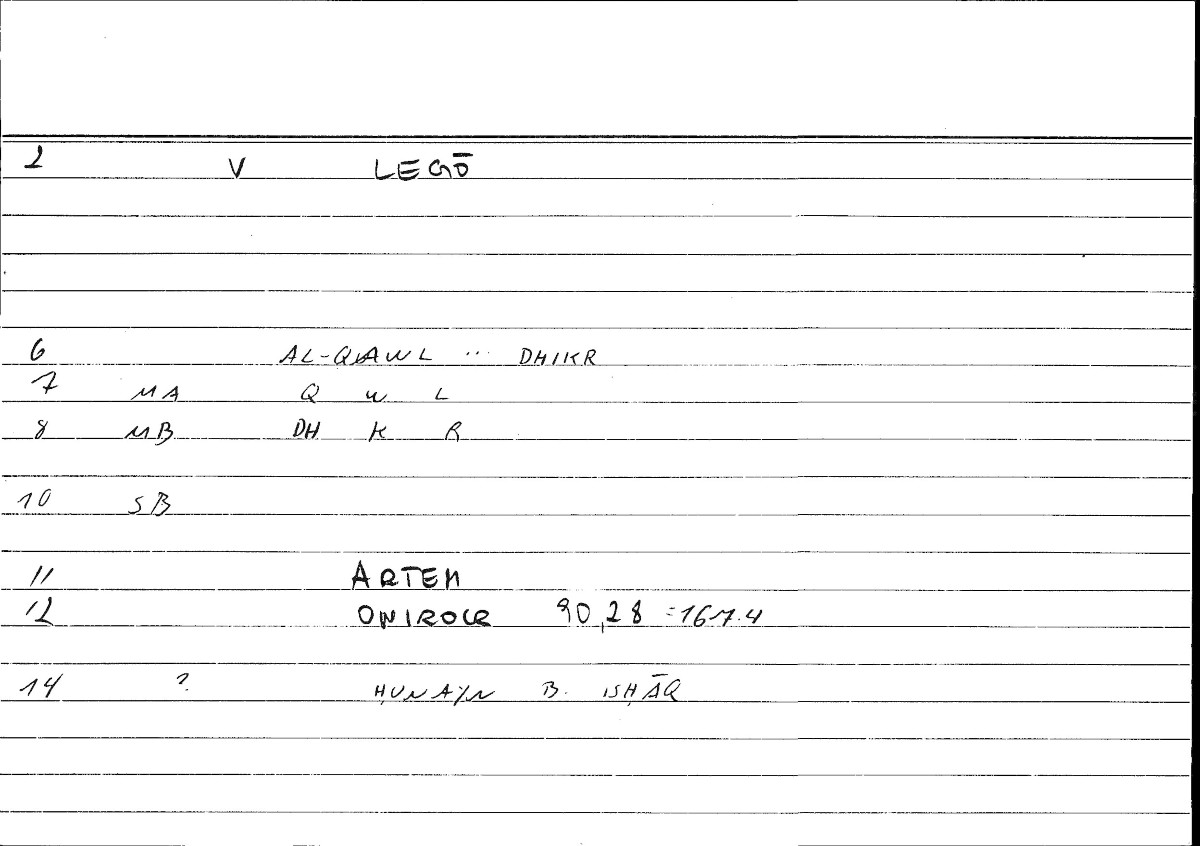 2 V LEGŌ
6 AL-QAWL ... DHIKR
7 MA Q W L
8 MB DH K R
10 SB
11 ARTEM
12 ONIROCR 90,28 =167.4
14 ? ḤUNAYN B. ISḤĀQ